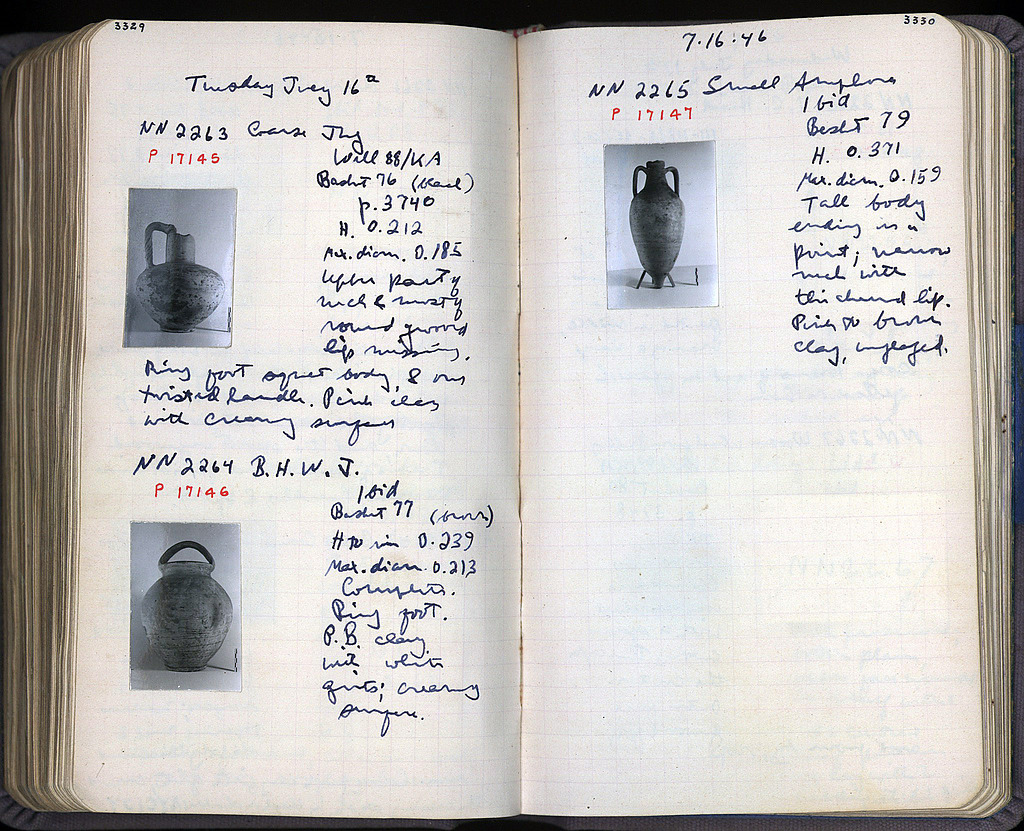 3329
Tuesday July 16th
NN 2263 Coarse Jug
P 17145
Well 88/KA
Baskt 76 (Kael)
p. 3740
H. 0.212
Max. diam. 0.185
Upper part of
neck & most of
round
lip missing.
Ring foot squat body, & one
twisted handle. Pink clay
with creamy surface
NN 2264 B.H.W.J.
P 17146
Ibid
Baskt 77
H to rim 0.239
Max. diam. 0.213
Complete.
Ring foot.
P.B. clay
with white
grits; creamy
surface.
3330
7.16.46
NN 2265 Small Amphora
P 17147
Ibid
Baskt 79
H. 0.371
Max. diam. 0.159
Tall body
ending in a
point; narrow
neck with
thickened lip.
Pink to brown
clay, unglazed.